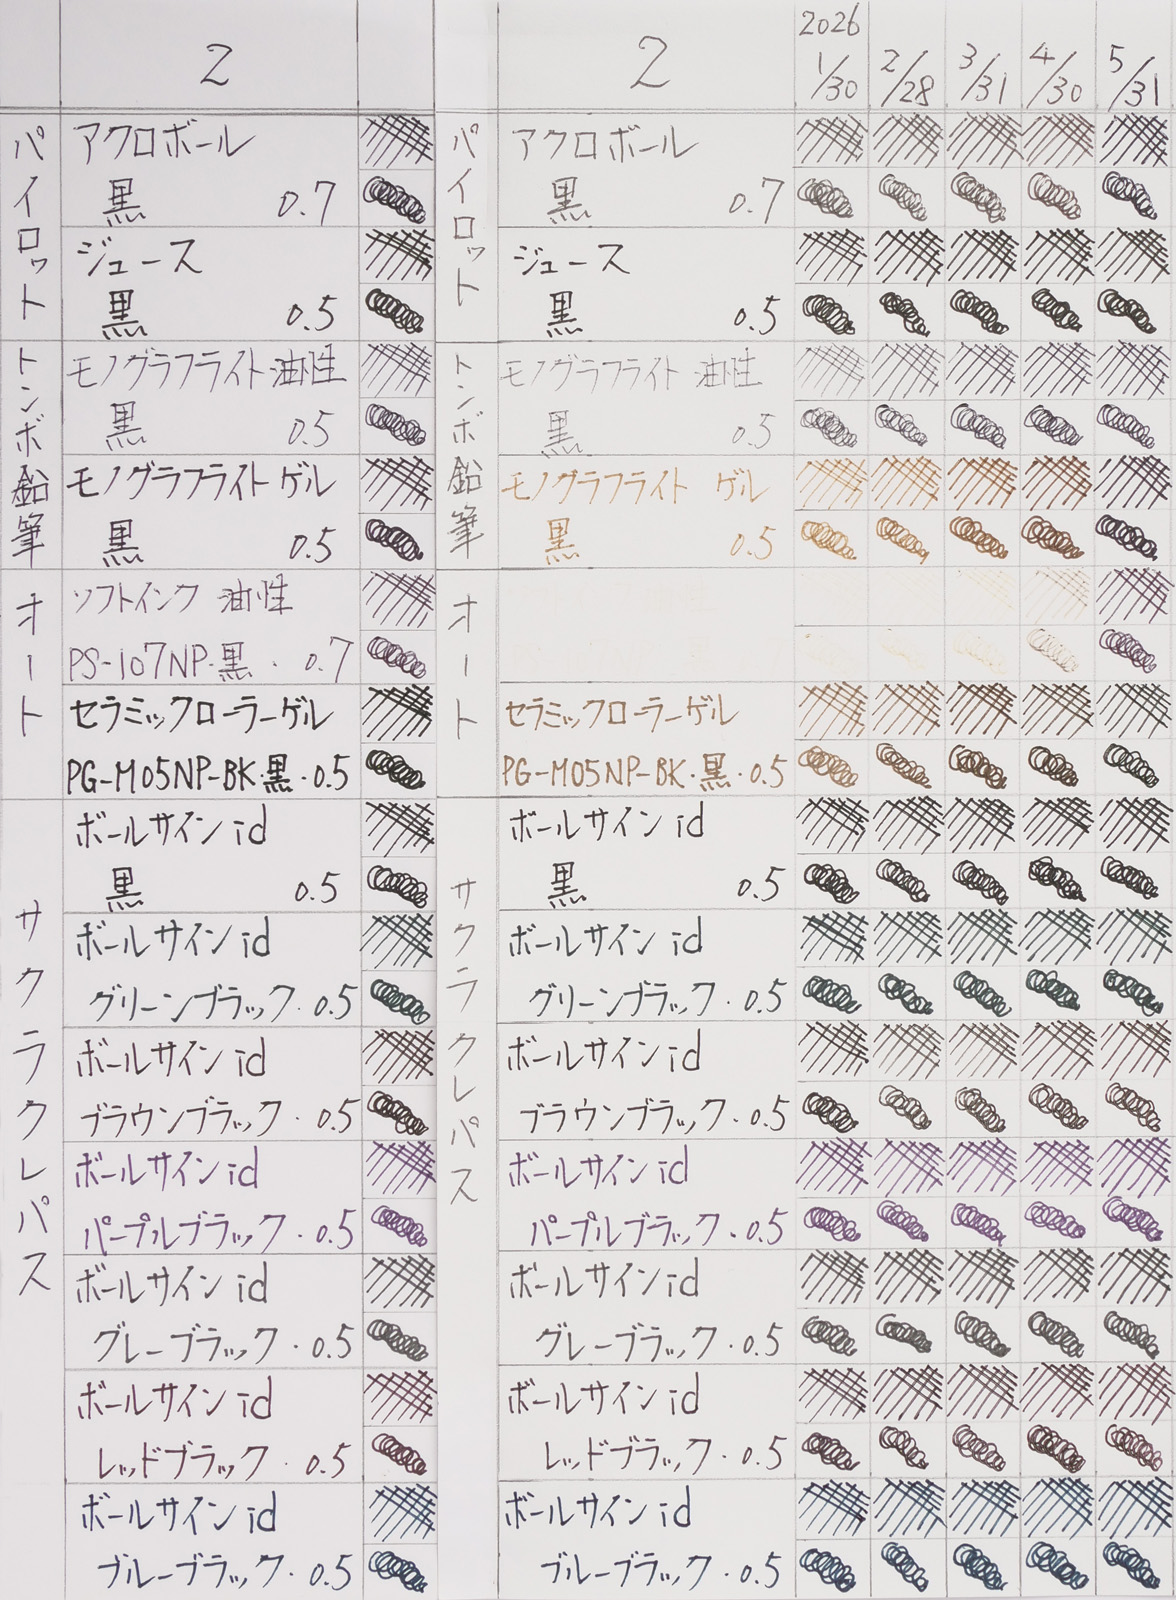 2
パイロット
アクロボール
黒 0.7
ジュース
黒 0.5
トンボ鉛筆
モノグラフライト油性
黒 0.5
モノグラフライト ゲル
黒 0.5
オート
ソフトインク 油性
PS-107NP・黒・0.7
セラミックローラーゲル
PG-M05NP-BK・黒・0.5
サクラクレパス
ボールサイン id
黒 0.5
ボールサイン id
グリーンブラック・0.5
ボールサイン id
ブラウンブラック・0.5
ボールサイン id
パープルブラック・0.5
ボールサイン id
グレーブラック・0.5
ボールサイン id
レッドブラック・0.5
ボールサイン id
ブルーブラック・0.5
2
2026
1/30 2/28 3/31 4/30 5/31
パイロット
アクロボール
黒 0.7
ジュース
黒 0.5
トンボ鉛筆
モノグラフライト 油性
黒 0.5
モノグラフライト ゲル
黒 0.5
オート
セラミックローラーゲル
PG-M05NP-BK・黒・0.5
サクラクレパス
ボールサイン id
黒 0.5
ボールサイン id
グリーンブラック・0.5
ボールサイン id
ブラウンブラック・0.5
ボールサイン id
パープルブラック・0.5
ボールサイン id
グレーブラック・0.5
ボールサイン id
レッドブラック・0.5
ボールサイン id
ブルーブラック・0.5